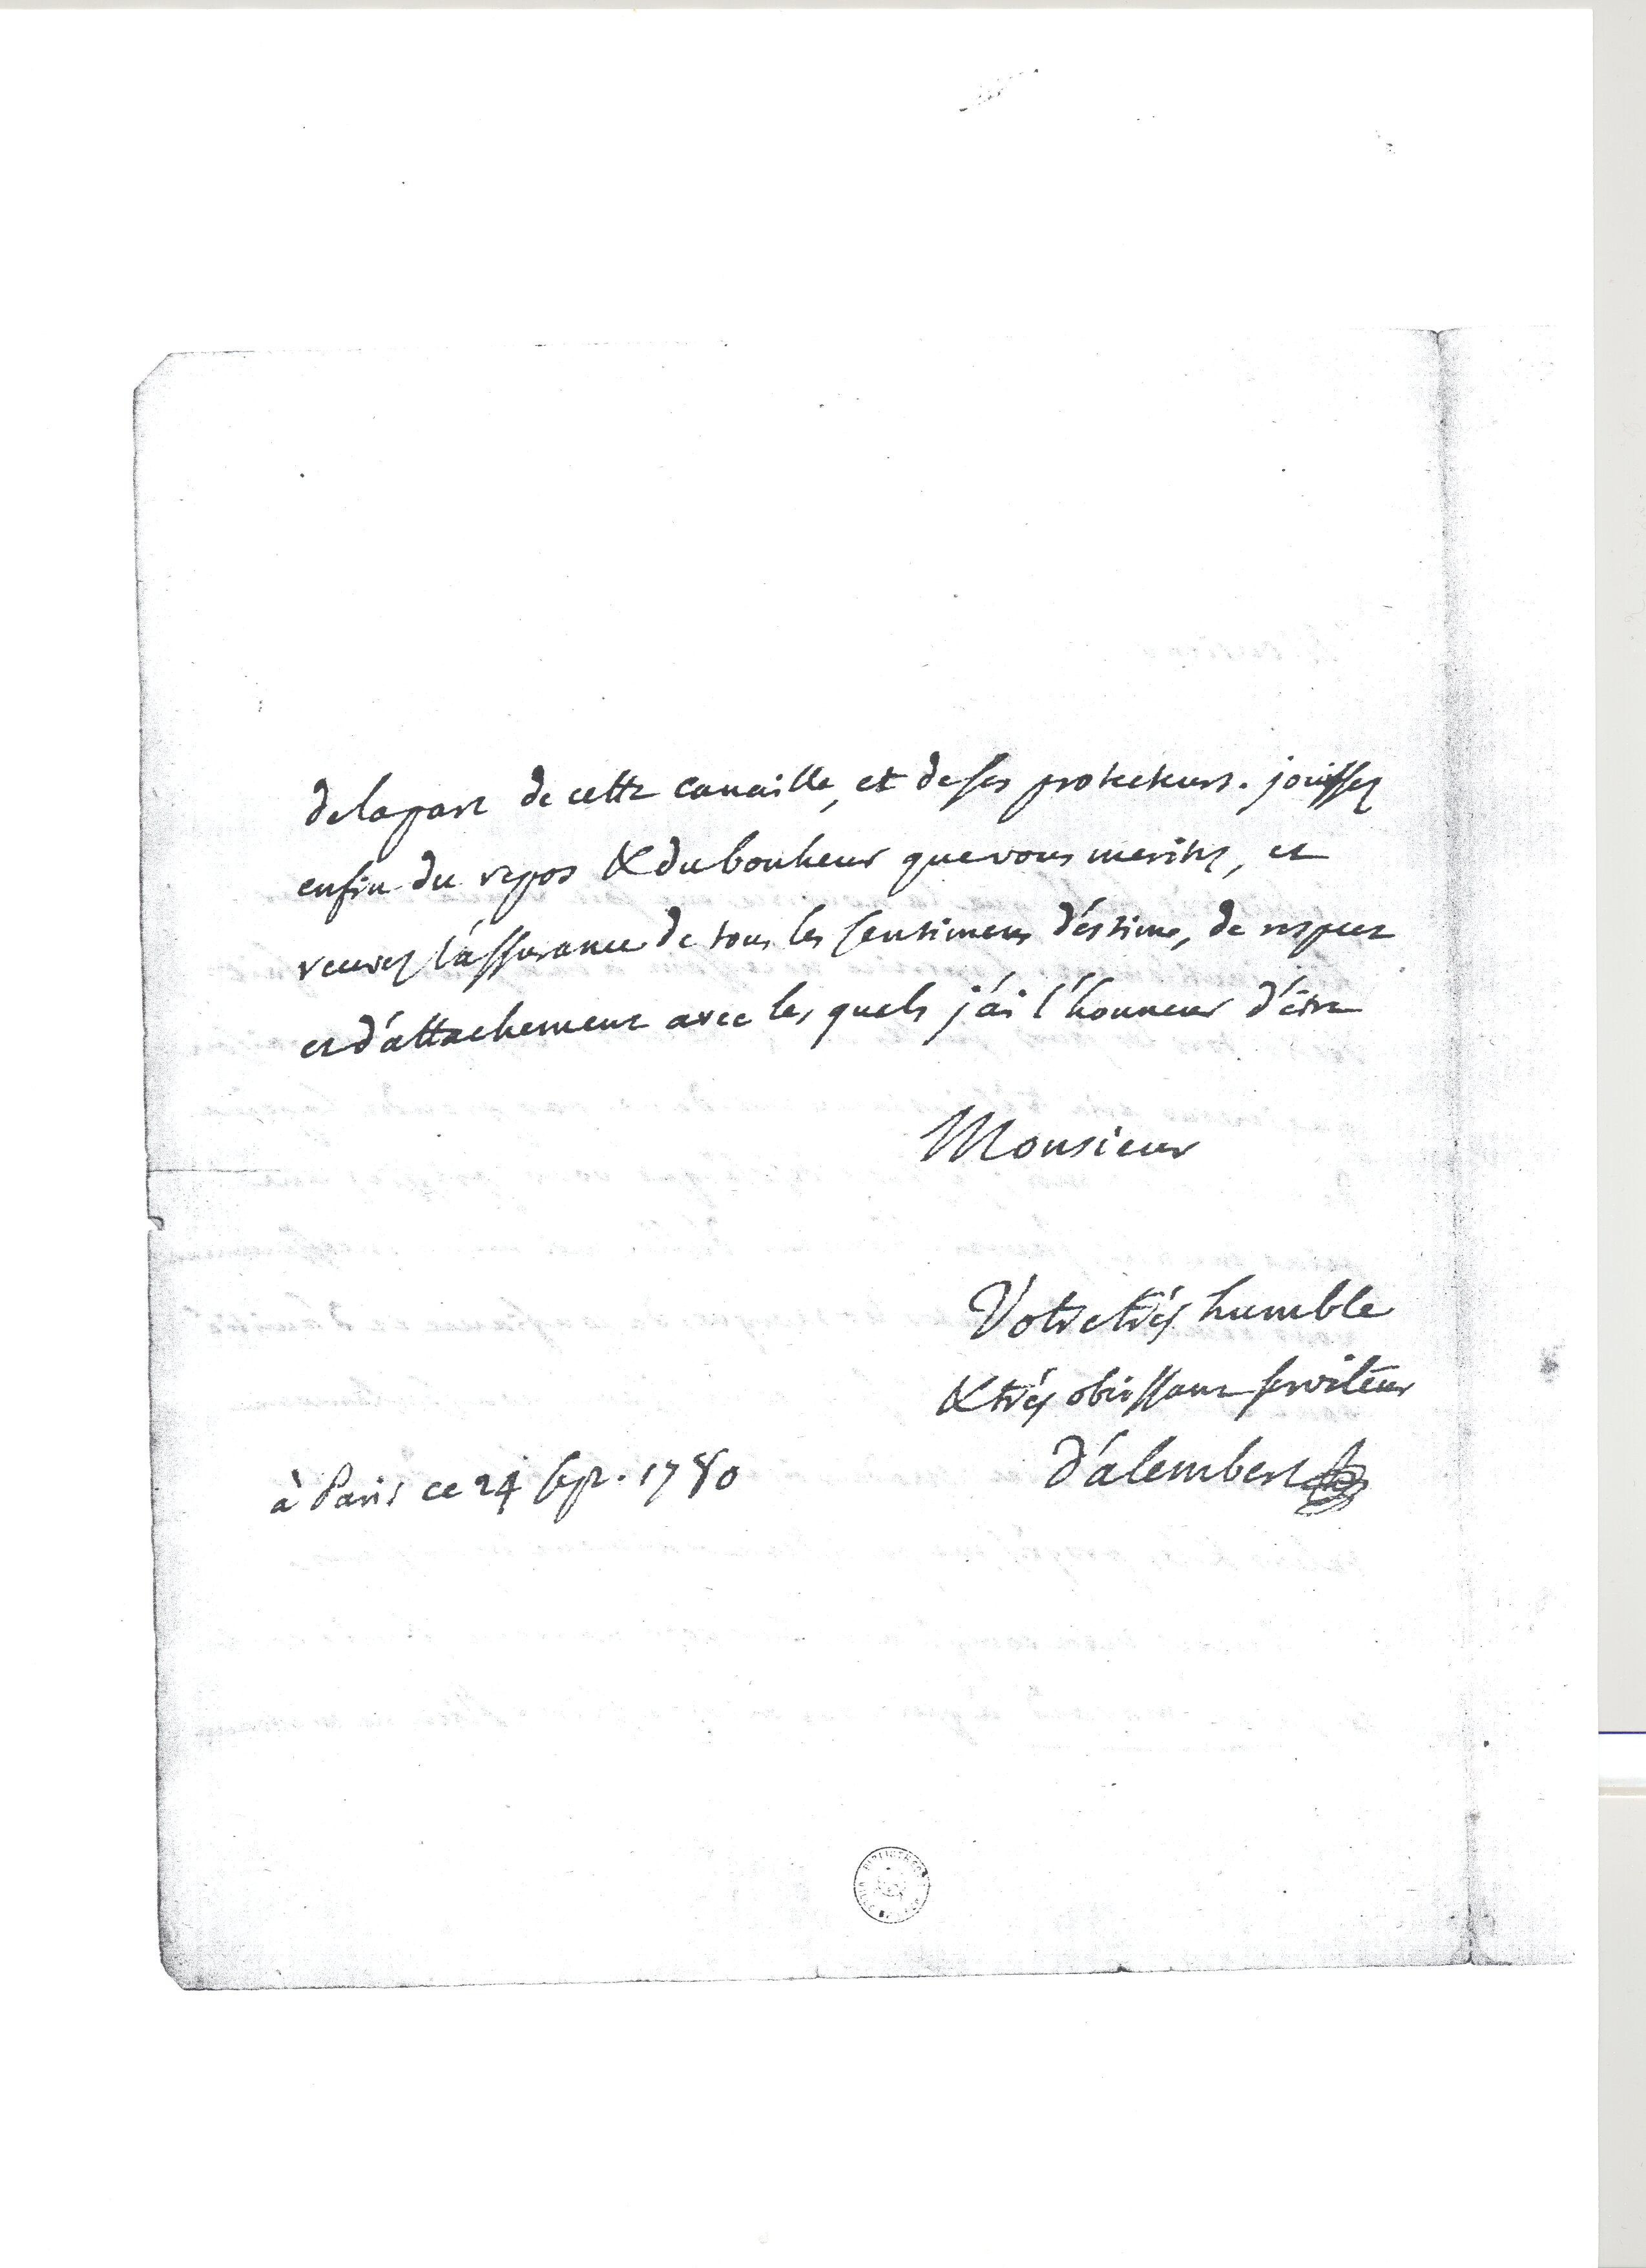 de la part de cette canaille, et de ses protecteurs. jouissez
enfin du repos & du bonheur que vous meritez, et
recevez l'assurance de tous les sentimens d'éstime, de respect
et d'attachement avec les quels j'ai l'honneur d'être
Monsieur
Votre très humble
& très obeissant serviteur
à Paris ce 24 sept. 1780
d'alembert